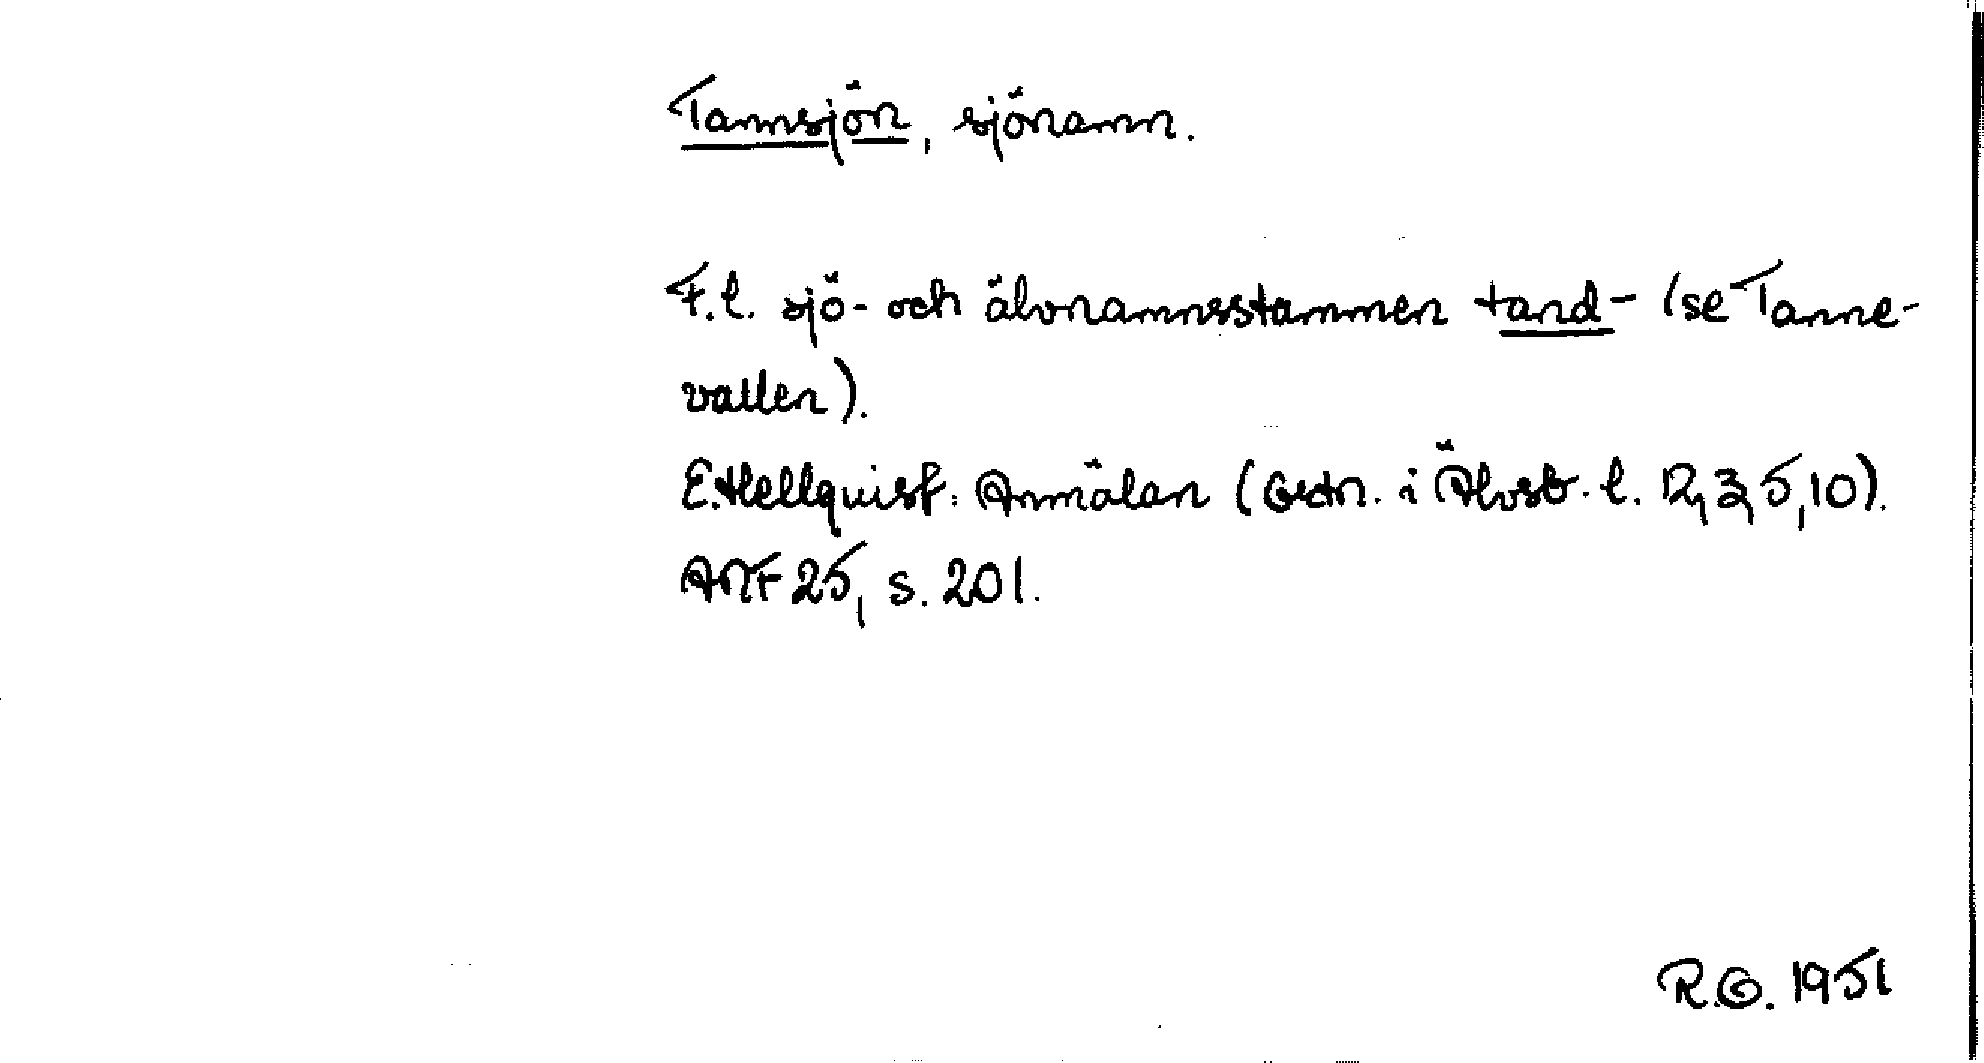 Tannsjön, sjönamn.
F.l. sjö- och älvnamnsstammen tand- (se Tanne-
vallen).
E. Hellquist: Anmälan (Ortn. i Älvsb. l. 12, 3, 5, 10).
ANF 25, s. 201.
R.G. 1951